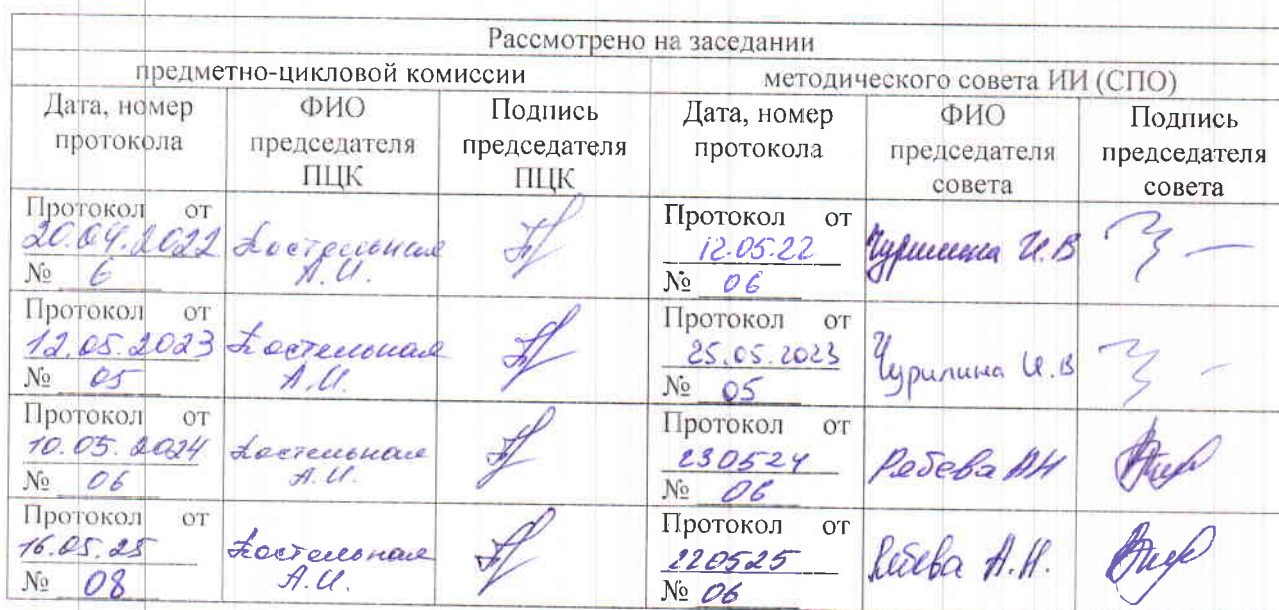 Рассмотрено на заседании
предметно-цикловой комиссии методического совета ИИ (СПО)
Дата, номер протокола ФИО председателя ПЦК Подпись председателя ПЦК Дата, номер протокола ФИО председателя совета Подпись председателя совета
Протокол от
20.04.2022
№ 6
Костельная
А.И.
Протокол от
12.05.22
№ 06
Чурилина И.В
Протокол от
12.05.2023
№ 05
Костельная
А.И.
Протокол от
25.05.2023
№ 05
Чурилина И.В
Протокол от
10.05.2024
№ 06
Костельная
А.И.
Протокол от
230524
№ 06
Рябева АН
Протокол от
16.05.25
№ 08
Костельная
А.И.
Протокол от
220525
№ 06
Рябева А.Н.